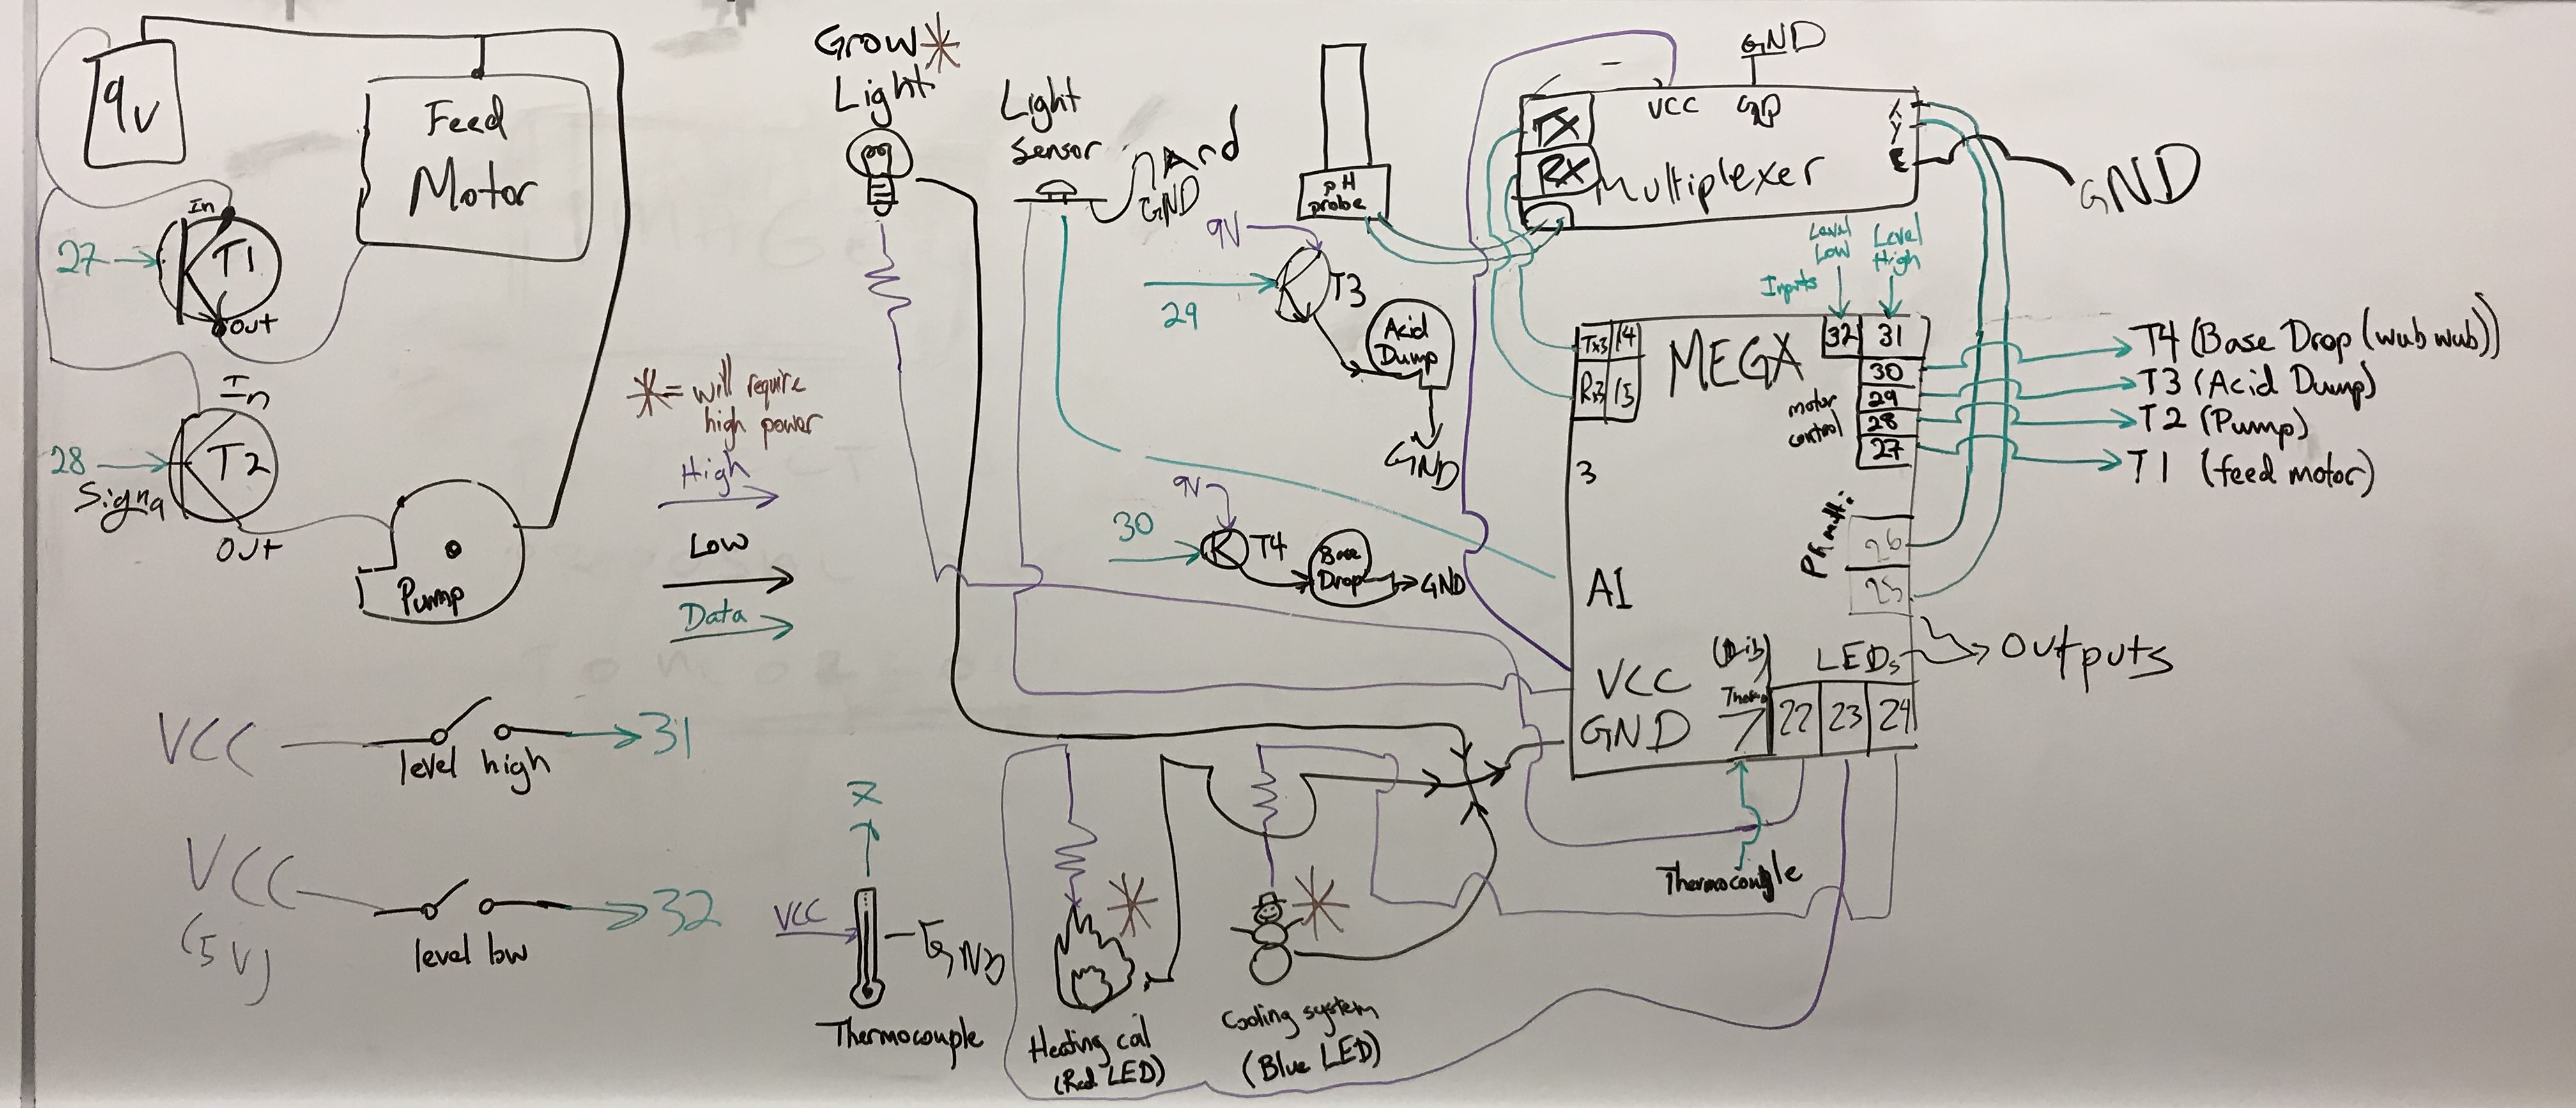 9v
Feed
Motor
In
T1
27
Out
In
T2
28
Signa
Out
Pump
Grow
Light
= will require
high power
High
Low
Data
Light
Sensor
And
GND
9V
29
T3
Acid
Dump
GND
pH
probe
9V
30
T4
Base
Drop
GND
GND
TX
RX
VCC
X
Y
E
Multiplexer
GND
Level
Low
Level
High
Inputs
Tx3 14
Rx3 15
MEGA
32 31
30
29
28
27
motor
control
T4 (Base Drop (wub wub))
T3 (Acid Dump)
T2 (Pump)
T1 (feed motor)
3
26
25
AI
VCC
GND
LEDs
Outputs
7 22 23 24
Thermocouple
VCC
level high
31
VCC
(5V)
level low
32
7
VCC
GND
Thermocouple
Heating coil
(Red LED)
Cooling system
(Blue LED)